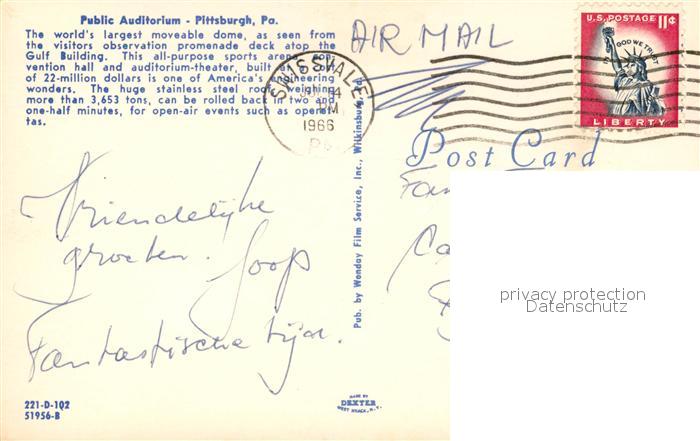 Public Auditorium - Pittsburgh, Pa.
The world's largest moveable dome, as seen from
the visitors observation promenade deck atop the
Gulf Building. This all-purpose sports arena, con-
vention hall and auditorium-theater, built at a cost
of 22-million dollars is one of America's engineering
wonders. The huge stainless steel roof, weighing
more than 3,653 tons, can be rolled back in two and
one-half minutes, for open-air events such as operet-
tas.
AIR MAIL
U.S. POSTAGE 11¢
IN GOD WE TRUST
LIBERTY
SWISSVALE
PM
1966
Post Card
Vriendelijke
groeten. Joop
Fantastische tijd.
Pub. by Wonday Film Service, Inc., Wilkinsburg, Pa.
privacy protection
Datenschutz
221-D-102
51956-B
MADE BY
DEXTER
WEST NYACK, N.Y.